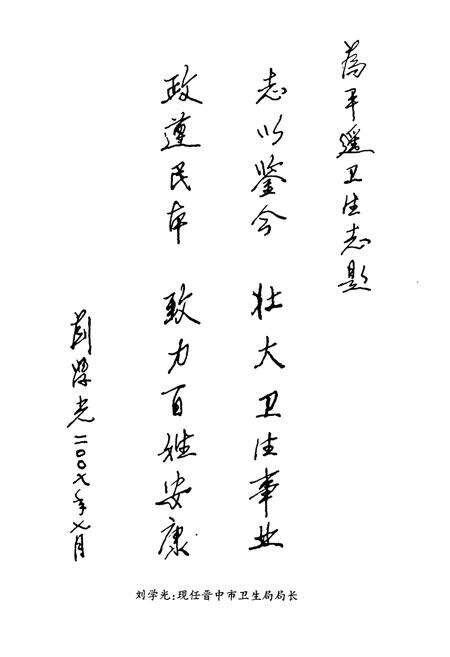 为平遥卫生志题
志以鉴今 壮大卫生事业
政遵民本 致力百姓安康
刘学光二〇〇七年七月
刘学光:现任晋中市卫生局局长